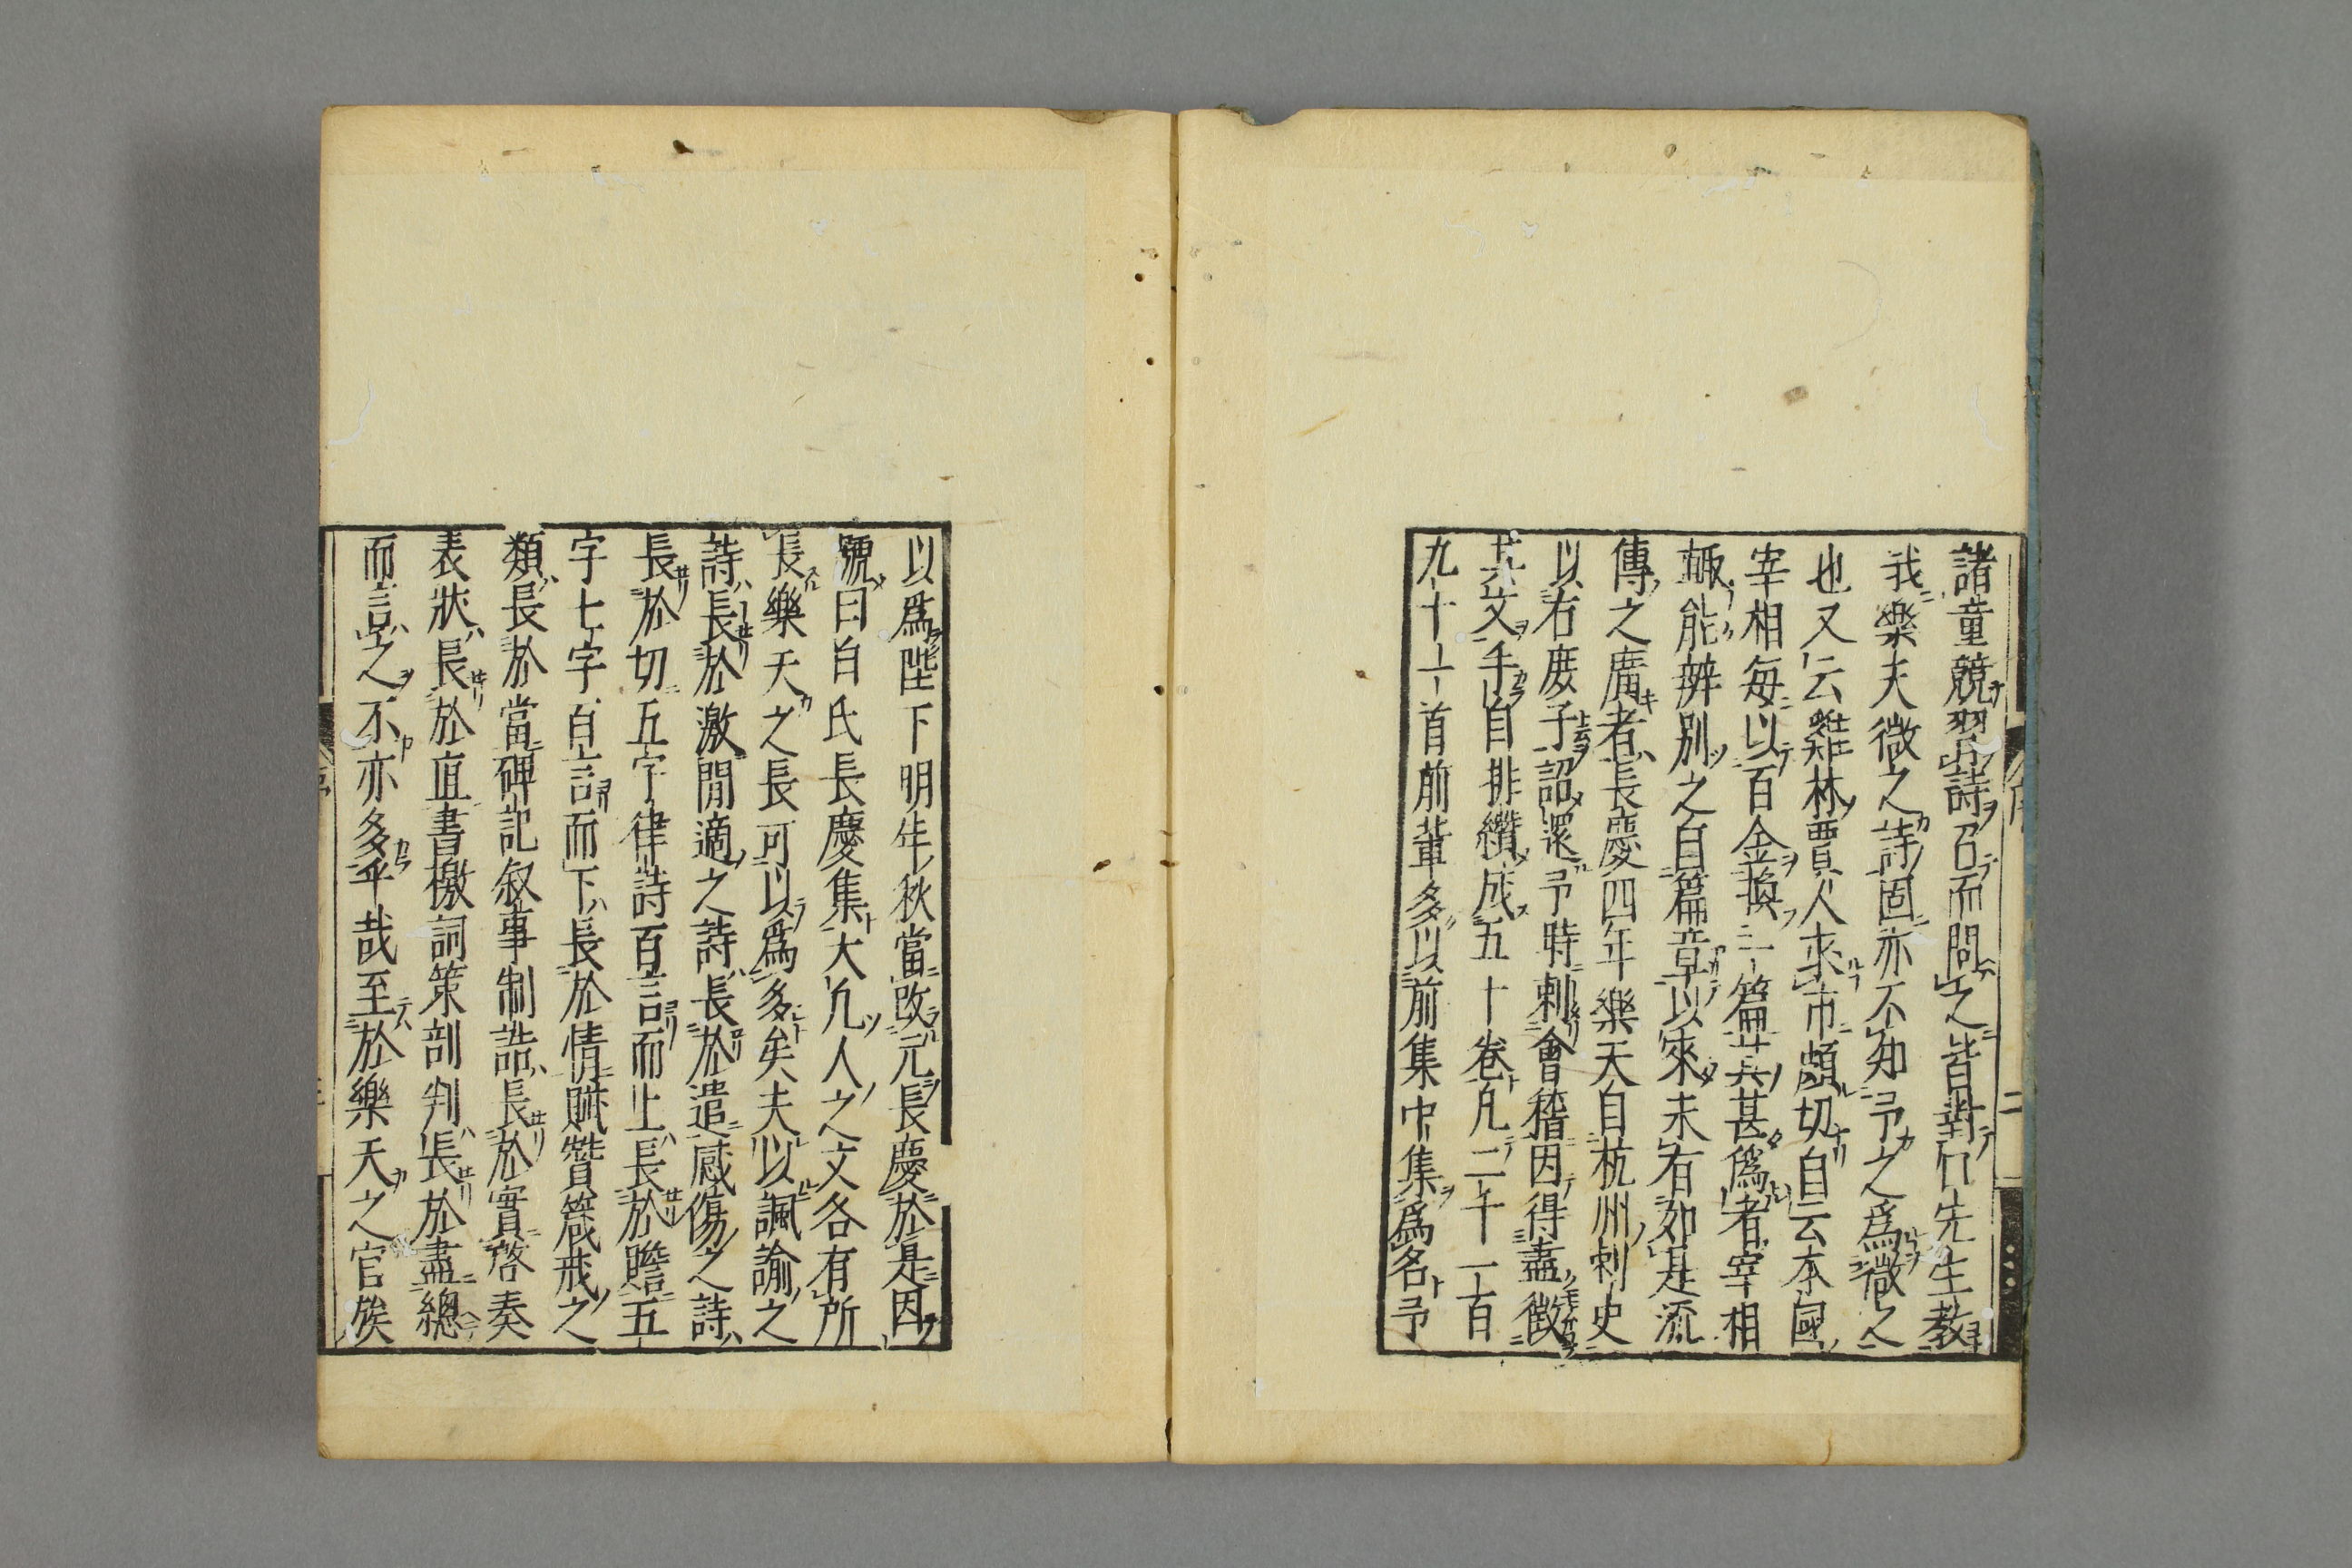 諸童競習詩召而問之皆對曰先生教
我樂天微之詩固亦不知予之爲微之
也又云雞林賈人求市頗切自云本國
宰相每以百金換一篇其甚僞者宰相
輙能辨別之自篇章以來未有如是流
傳之廣者長慶四年樂天自杭州刺史
以右庶子詔還予時刺會稽因得盡徵
其文手自排纘成五十卷凡二千一百
九十一首前輩多以前集中集爲名予
以爲陛下明年秋當改元長慶於是因
號曰白氏長慶集大凡人之文各有所
長樂天之長可以爲多矣夫以諷諭之
詩長於激閒適之詩長於遣感傷之詩
長於切五字律詩百言而止長於贍五
字七字百言而下長於情賦贊箴戒之
類長於當碑記叙事制誥長於實啓奏
表狀長於直書檄詞策剖判長於盡總
而言之不亦多乎哉至於樂天之官族